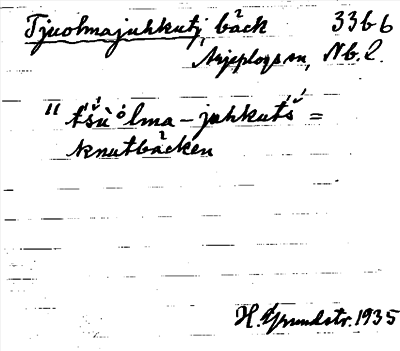 Tjuolmajuhkutj, bäck 33b6
Arjeplogs sn, Nb. l.
" tšuolma - juhkutš =
knutbäcken
H. Grundstr. 1935